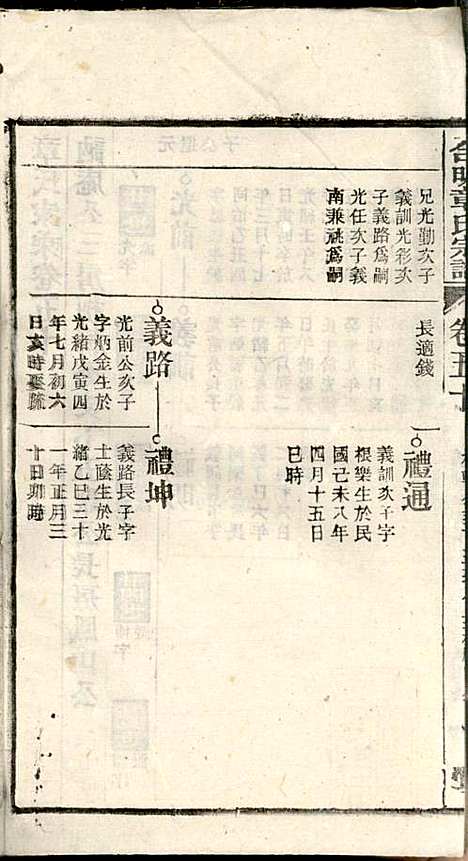 台明章氏宗譜
卷五十
兄光勤次子
義訓光彩次
子義路爲嗣
光任次子義
南兼祧爲嗣
長適錢
禮通
義訓次子字
根樂生於民
國己未八年
四月十五日
巳時
義路
光前公次子
字炳金生於
光緒戊寅四
年七月初六
日亥時娶
禮坤
義路長子字
士蔭生於光
緒乙巳三十
一年正月三
十日卯時